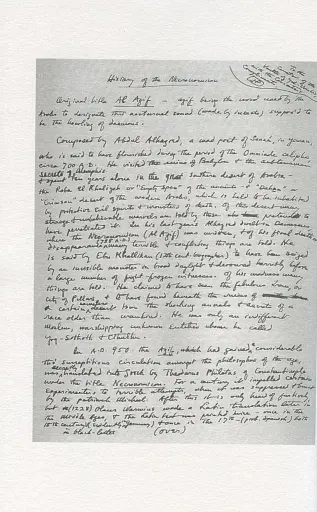 History of the Necronomicon
Original title Al Azif — azif being the word used by the
Arabs to designate that nocturnal sound (made by insects) suppos'd to
be the howling of daemons.
Composed by Abdul Alhazred, a mad poet of Sanaá, in Yemen,
who is said to have flourished during the period of the Ommiade caliphs,
circa 700 A.D. He visited the ruins of Babylon & the subterranean
secrets of Memphis
& spent ten years alone in the great southern desert of Arabia —
the Roba El Khaliyeh or "Empty Space" of the ancients — & "Dahna" or
"Crimson" desert of the modern Arabs, which is held to be inhabited
by protective evil spirits & monsters of death. Of this desert many
strange & unbelievable marvels are told by those who pretend to
have penetrated it. In his last years Alhazred dwelt in Damascus,
where the Necronomicon (Al Azif) was written, & of his final death or
disappearance (738 A.D.) many terrible & conflicting things are told. He
is said by Ebn Khallikan (12th cent. biographer) to have been seized
by an invisible monster in broad daylight & devoured horribly before
a large number of fright-frozen witnesses. Of his madness many
things are told. He claimed to have seen the fabulous Irem, or
City of Pillars, & to have found beneath the ruins of
a certain nameless desert town the shocking annals & secrets of a
race older than mankind. He was only an indifferent
Moslem, worshipping unknown entities whom he called
Yog-Sothoth & Cthulhu.
In A.D. 950 the Azif, which had gained considerable
tho' surreptitious circulation amongst the philosophers of the age,
was secretly translated into Greek by Theodorus Philetas of Constantinople
under the title Necronomicon. For a century it impelled certain
experimenters to terrible attempts, when it was suppressed & burnt
by the patriarch Michael. After this it is only heard of furtively,
but (1228) Olaus Wormius made a Latin translation later in
the Middle Ages, & the Latin text was printed twice — once in the
15th century in black-letter (evidently in Germany) & once in the 17th — (prob. Spanish) both
(over)